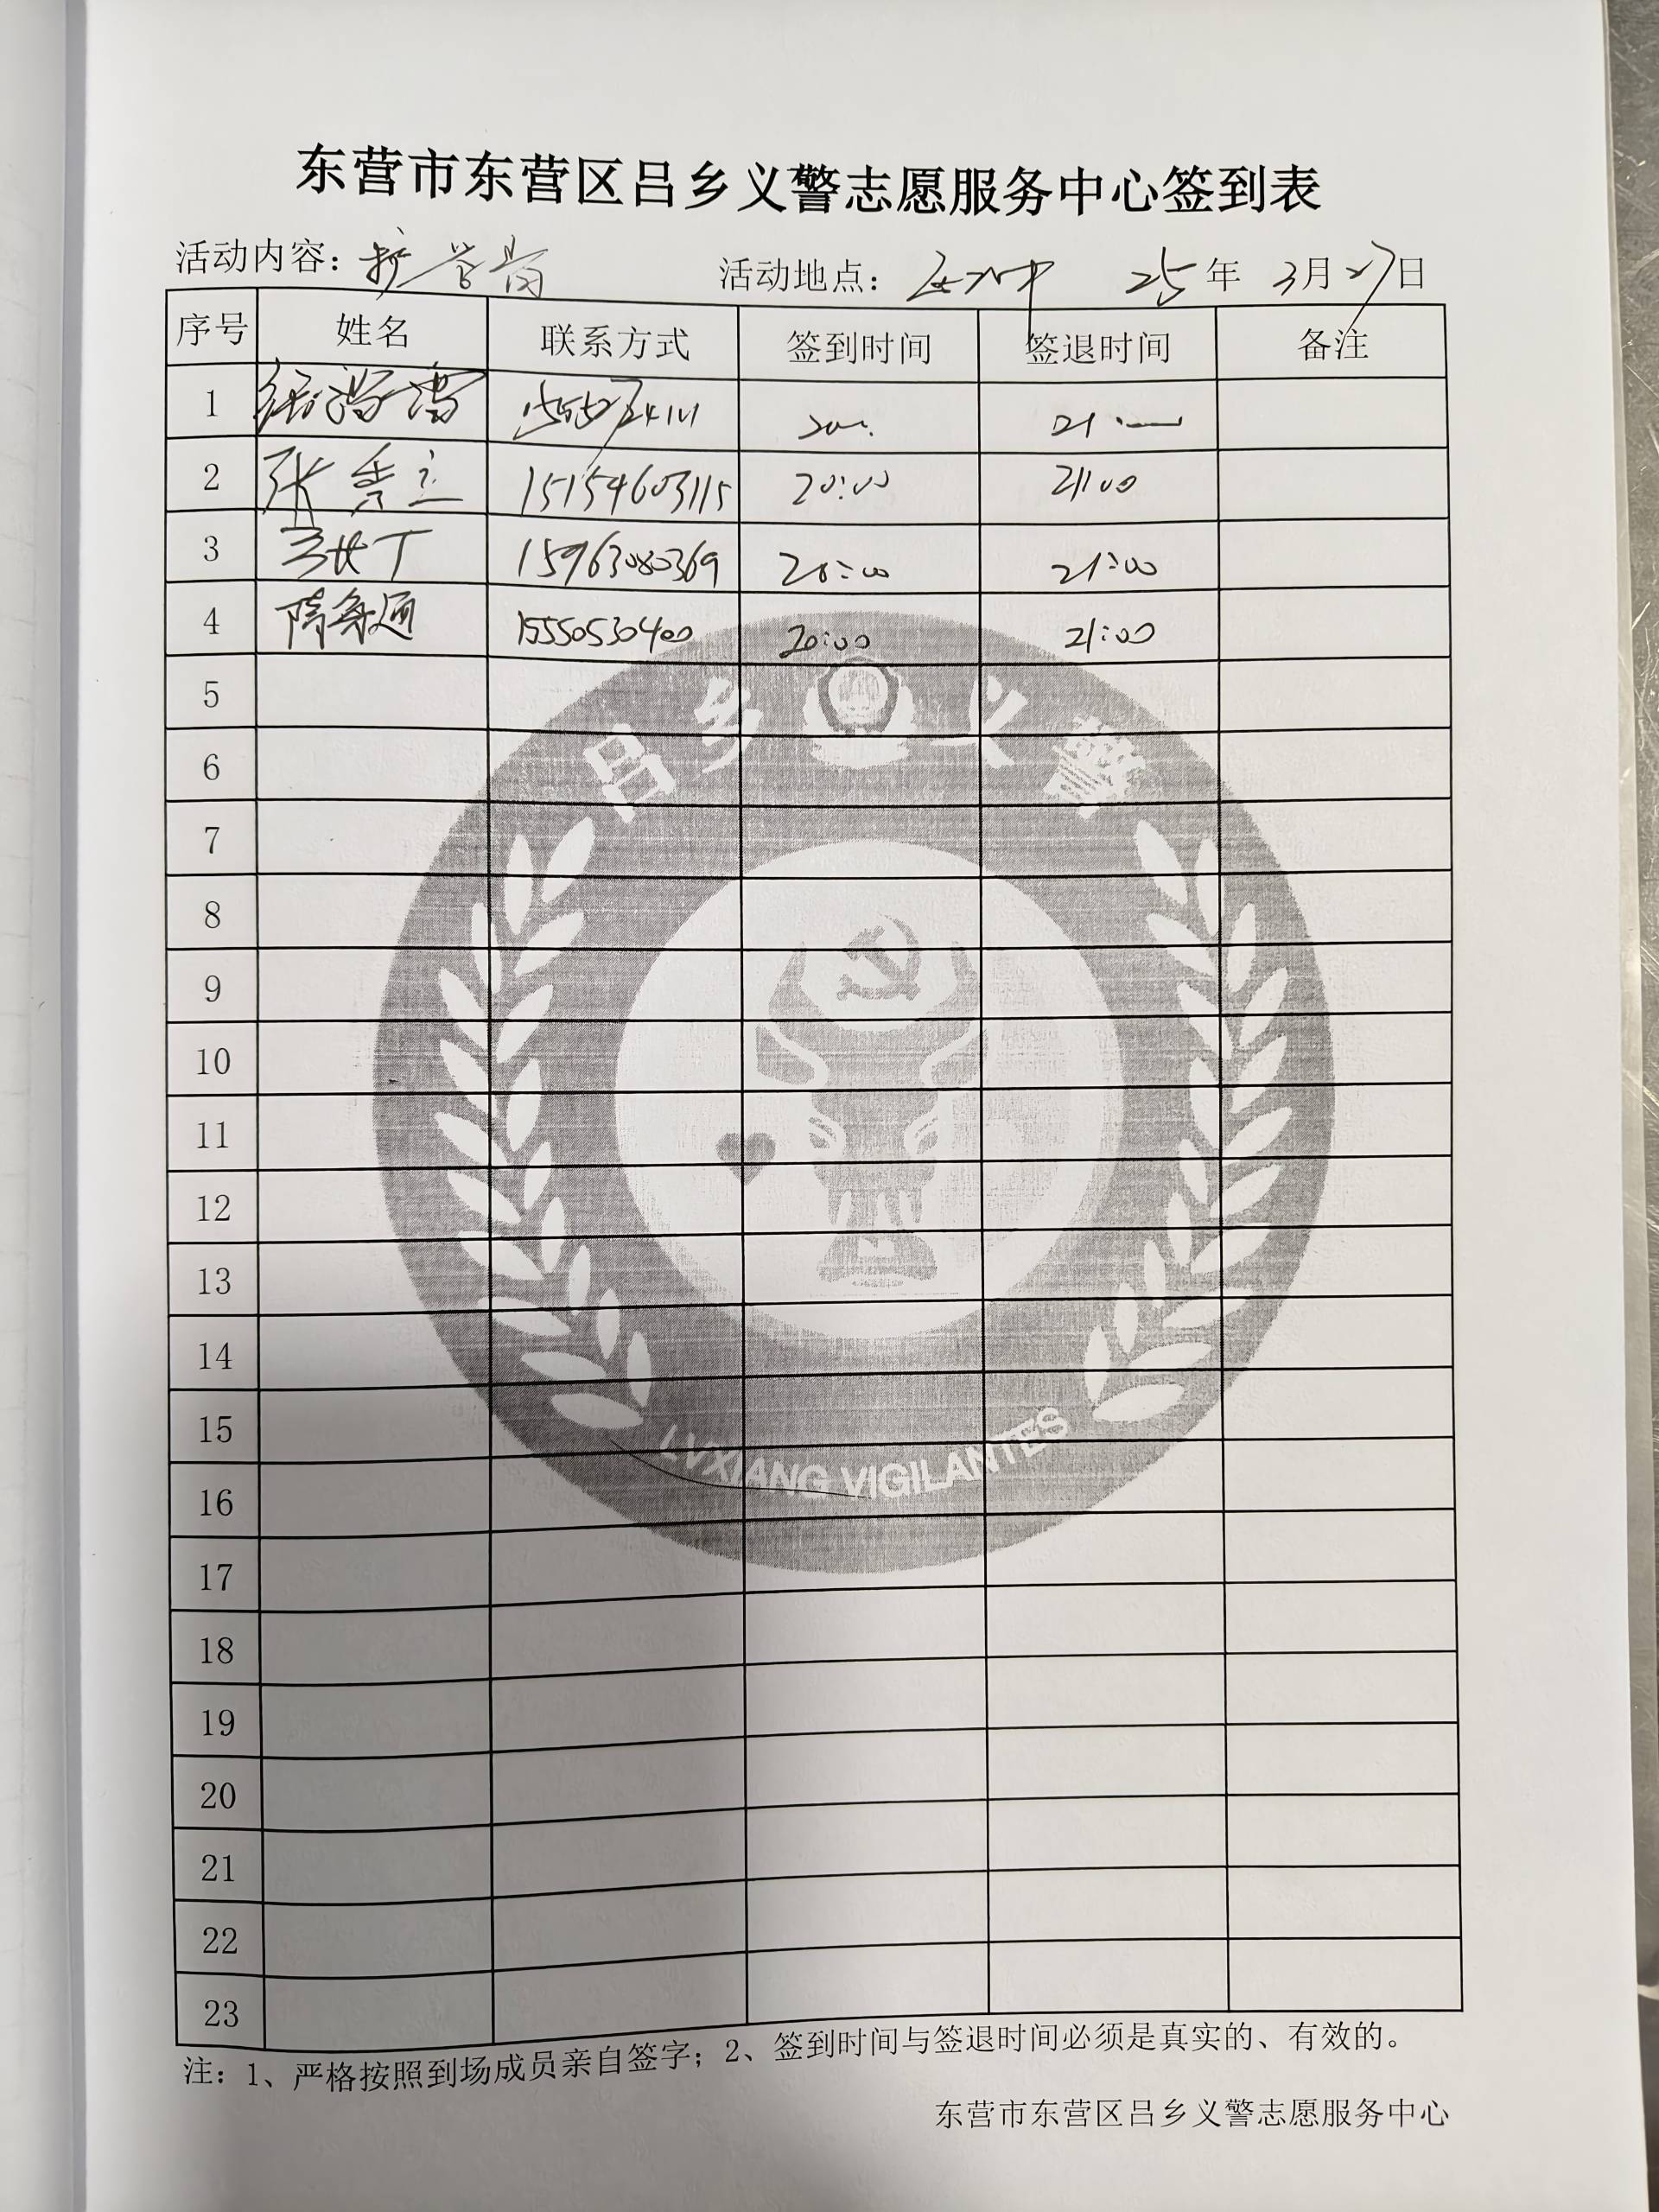 东营市东营区吕乡义警志愿服务中心签到表
活动内容：护学岗 活动地点： 25年 3月27日
序号 姓名 联系方式 签到时间 签退时间 备注
1 21:
2 张秀立 15154603115 20:00 21:00
3 15963080369 20:00 21:00
4 隋 15550530400 20:00 21:00
5
6
7
8
9
10
11
12
13
14
15
16
17
18
19
20
21
22
23
吕乡义警
LVXIANG VIGILANTES
注：1、严格按照到场成员亲自签字；2、签到时间与签退时间必须是真实的、有效的。
东营市东营区吕乡义警志愿服务中心